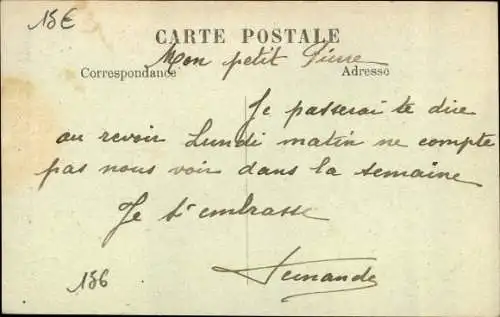 15€
CARTE POSTALE
Mon petit Pierre
Correspondance
Adresse
Je passerai te dire
au revoir Lundi matin ne compte
pas nous voir dans la semaine
Je t'embrasse
Fernande
156